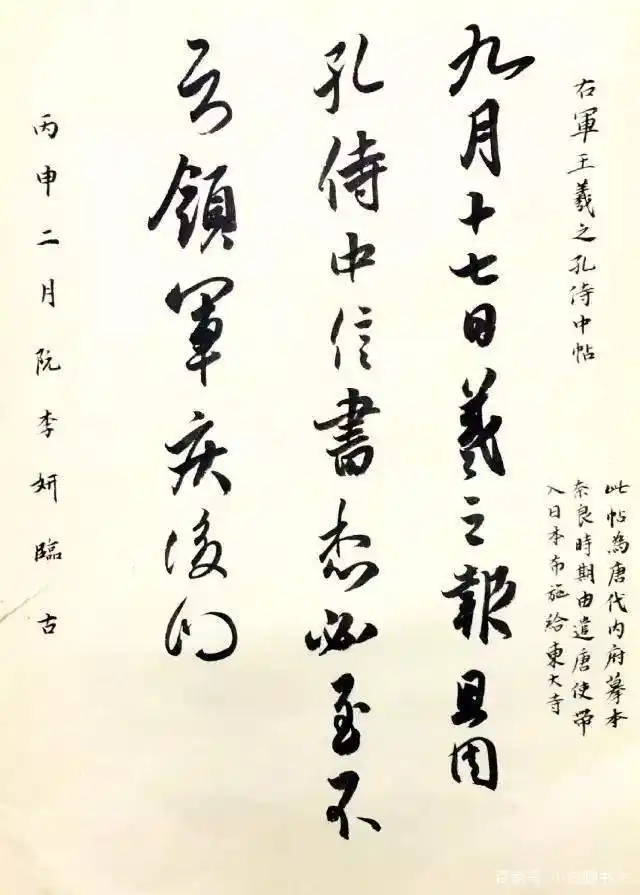 右軍王羲之孔侍中帖
此帖為唐代内府摹本
奈良時期由遣唐使帶
入日本布施給東大寺
九月十七日羲之報且因
孔侍中信書想必至不
知領軍疾後問
丙申二月阮李妍臨古